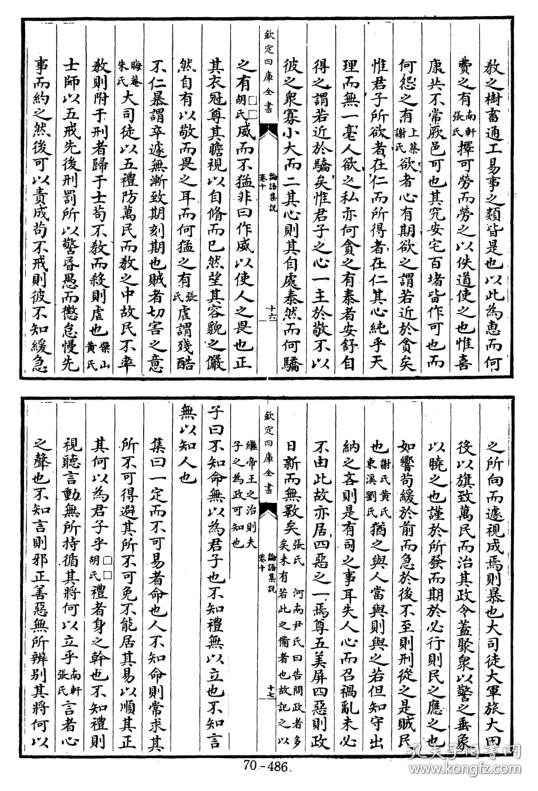 教之樹畜通工易事之類皆是也以此為惠而何
費之有南軒張氏擇可勞而勞之以佚道使之也惟喜
康共不常厥邑可也其究安宅百堵皆作可也而
何怨之有上蔡謝氏欲者心有期欲之謂若近於貪矣
惟君子所欲者在仁而所得者在仁其心純乎天
理而無一毫人欲之私亦何貪之有泰者安舒自
得之謂若近於驕矣惟君子之心一主於敬不以
彼之衆寡小大而二其心則其自處泰然而何驕
欽定四庫全書
論語集說
卷十
十六
之有□□胡氏威而不猛非曰作威以使人之畏也正
其衣冠尊其瞻視以自脩而已然望其容貌之儼
然自有以敬而畏之耳而何猛之有張氏虐謂殘酷
不仁暴謂卒遽無漸致期刻期也賊者切害之意
晦菴朱氏大司徒以五禮防萬民而教之中故民不率
教則附于刑者歸于士苟不教而殺則虐也㯋山黃氏
士師以五戒先後刑罰所以警昏愚而懲怠慢先
事而約之然後可以責成苟不戒則彼不知緩急
之所向而遽視成焉則暴也大司徒大軍旅大田
役以旗致萬民而治其政令蓋聚衆以警之垂象
以曉之也謹於所發而期於必行則民之應之也
如響苟緩於前而急於後不至則刑從之是賊民
也謝氏黃氏東溪劉氏猶之與人當與則與之若但知守出
納之吝則是有司之事耳失人心而召禍亂未必
不由此故亦居四惡之一焉尊五美屏四惡則政
日新而無斁矣張氏 河南尹氏曰告問政者多矣未有若此之備者也故記之以
欽定四庫全書
論語集說
卷十
十七
繼帝王之治則夫子之為政可知也
子曰不知命無以為君子也不知禮無以立也不知言
無以知人也
集曰一定而不可易者命也人不知命則常求其
所不可得避其所不可免不能居其易以順其正
其何以為君子乎胡氏禮者身之幹也不知禮則
視聽言動無所持循其將何以立乎南軒張氏言者心
之聲也不知言則邪正善惡無所辨別其將何以
70-486.
孔夫子旧书网
www.kongfz.com